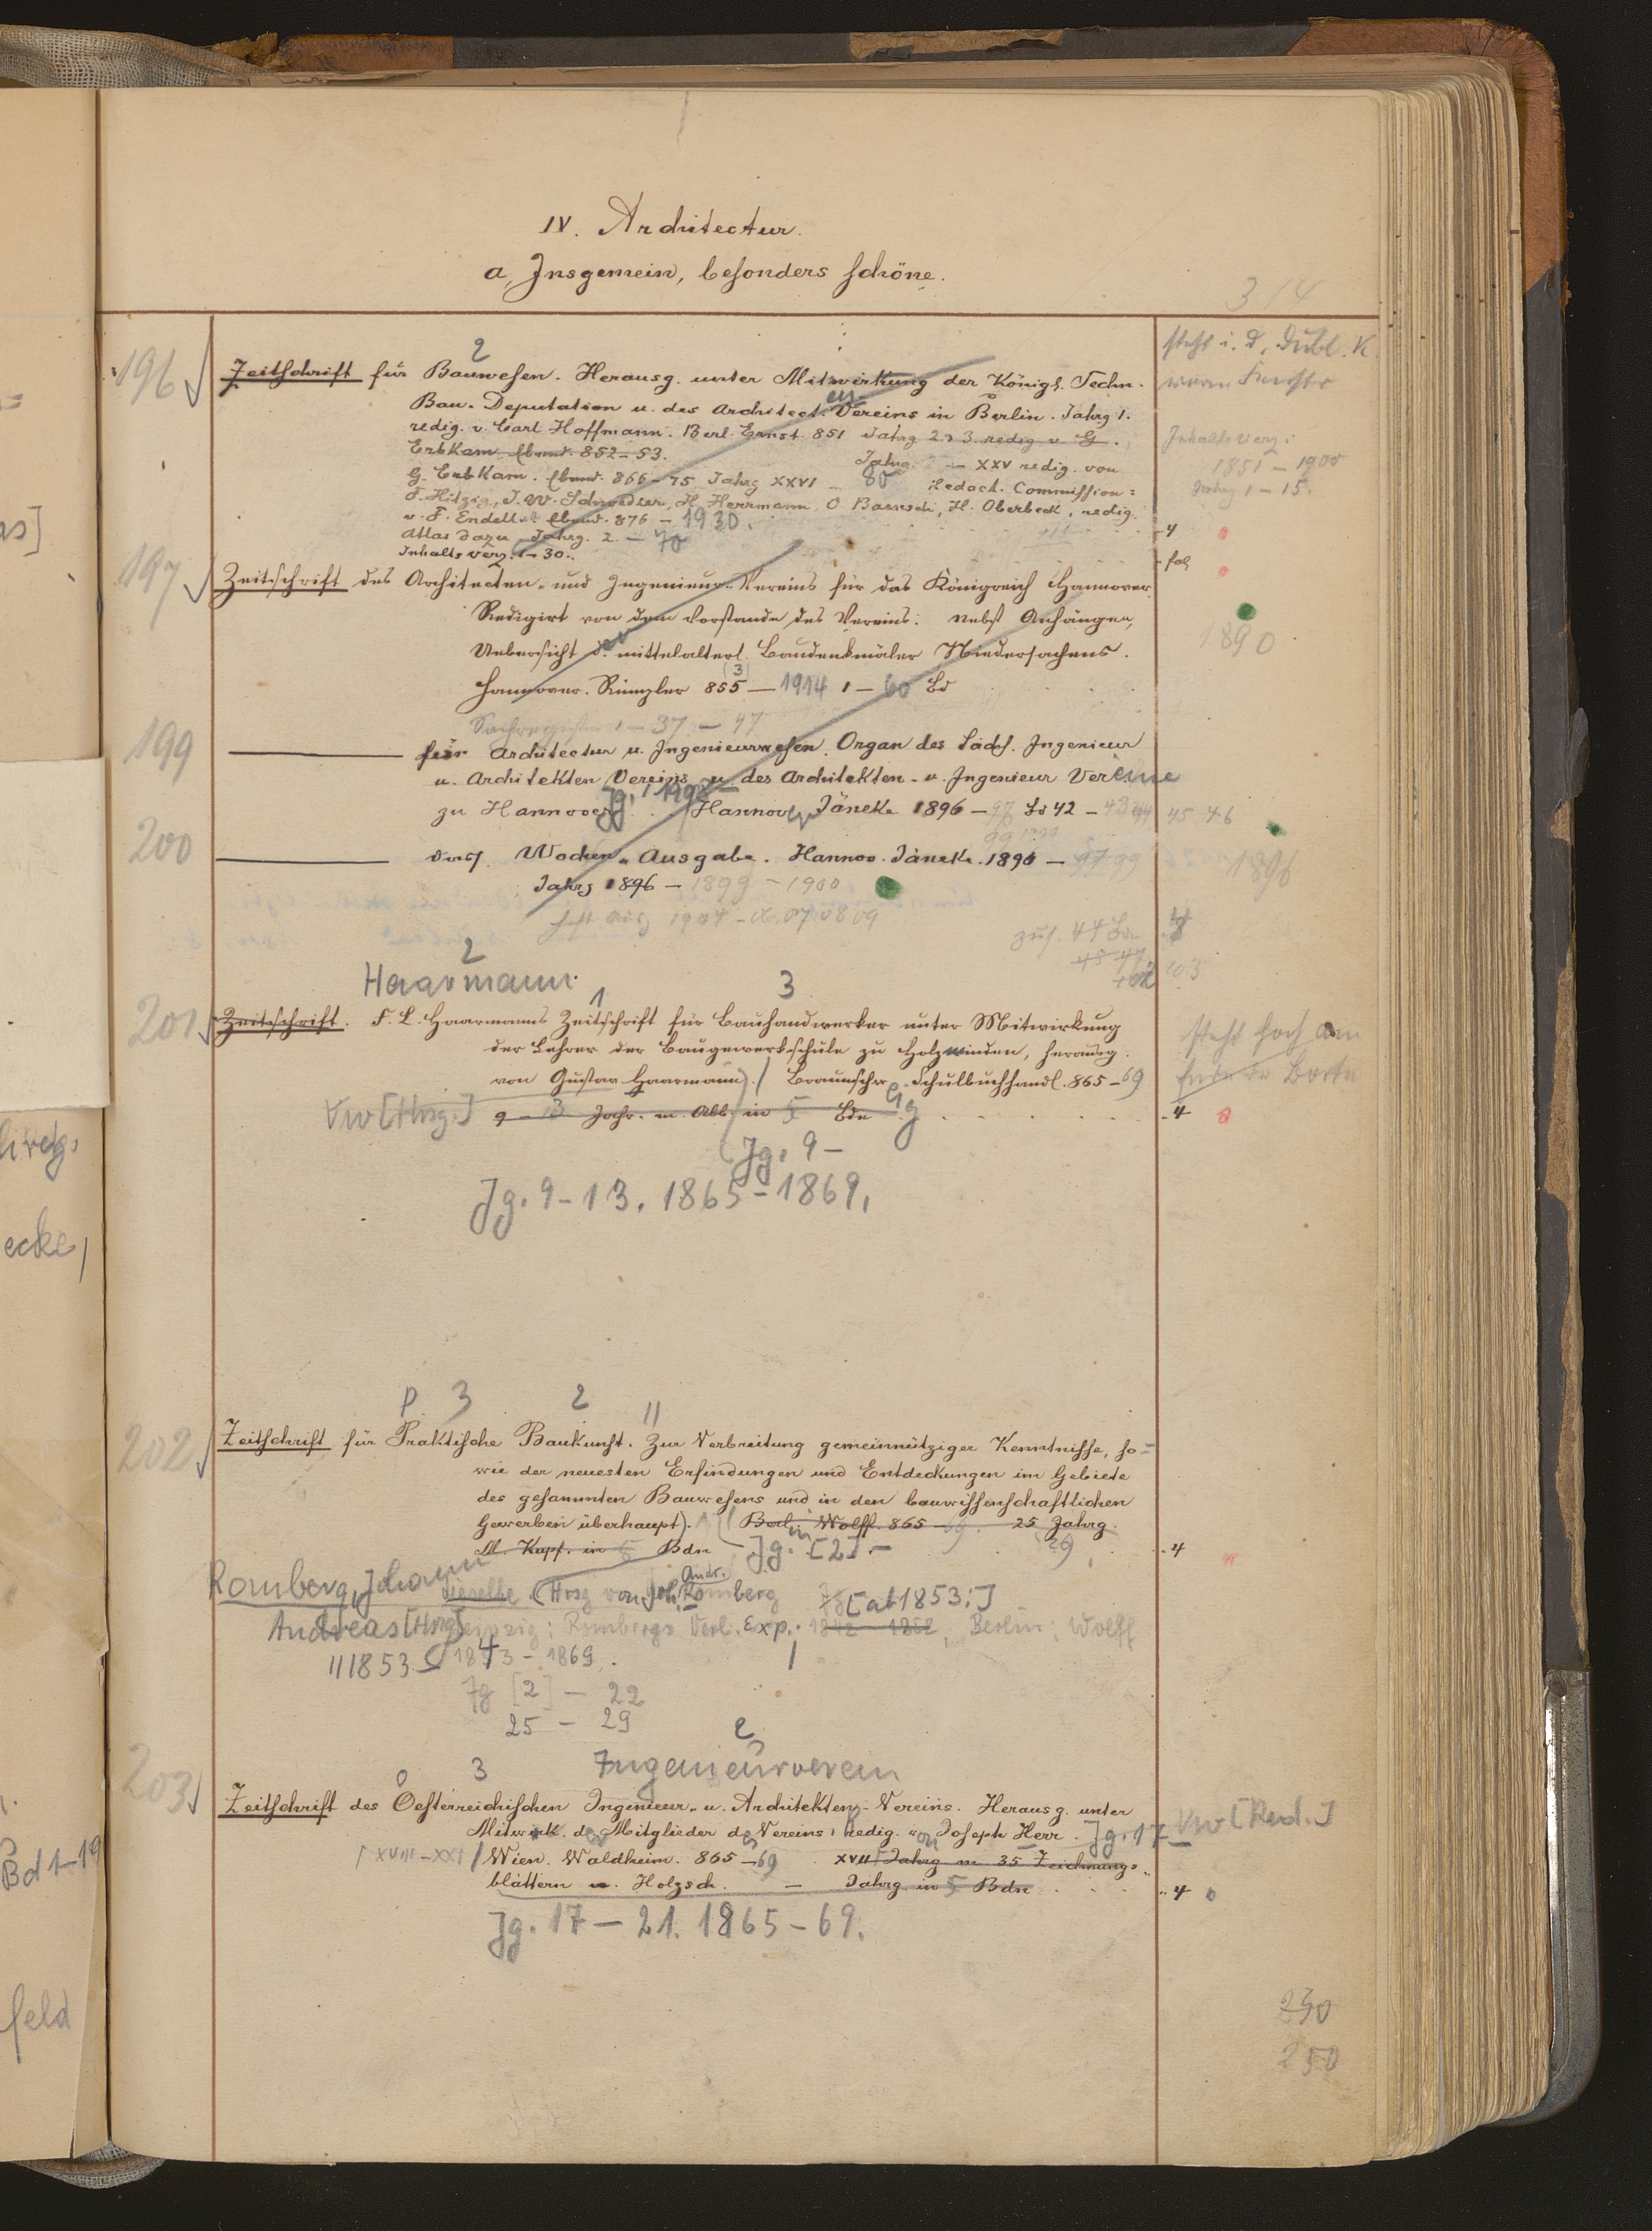 IV. Architectur.
a, Insgemein, besonders schöne.
314
196
Zeitschrift für Bauwesen. Herausg. unter Mitwirkung der Königl. Techn.
Bau-Deputation u. des Architect. Vereins in Berlin. Jahrg 1.
redig. v. Carl Hoffmann. Berl. Ernst 851 Jahrg 2 3 redig v G.
Erbkam Ebend. 852-53. Jahrg. — XXV redig. von
G. Erbkam. Ebend. 866-75 Jahrg XXVI - 80 Redact. Commission:
F. Hitzig, J. W. Schwedler, H. Herrmann, O. Baensch, H. Oberbeck, redig.
v. F. Endell Ebend. 876 - 1930.
Atlas dazu Jahrg. 2. - 70
Inhalts verz. 1-30.
steht i. D. Dubl. K.
Inhaltsverz:
1851 - 1900
Jahrg 1-15.
4
fol
197
Zeitschrift des Architecten- und Ingenieur-Vereins für das Königreich Hannover.
Redigirt von dem Vorstande des Vereins. Nebst Anhängen,
Uebersicht d. mittelalterl. Baudenkmäler Niedersachsens.
Hannover. Rümpler 855 — 1914 1 - 60 Bd
1890
1 - 37 - 47
199
für Architectur u. Ingenieurwesen. Organ des Sächs. Ingenieur
u. Architekten Vereins u. des Architekten- u. Ingenieur Vereine
zu Hannover. Hannov. Jäneke 1896 - 97 Bd 42 - 43 44 45 46
200
Wochen-Ausgabe. Hannov. Jäneke. 1896 - 97 99
1896
Jahrg 1896 - 1899 - 1900
Haarmann.
201
Zeitschrift. F. L. Haarmanns Zeitschrift für Bauhandwerker unter Mitwirkung
der Lehrer der Baugewerkschule zu Holzminden, herausg.
von Gustav Haarmann). Braunschw. Schulbuchhandl. 865-69
Vw [Hrsg.] 9 - 13 Jahr. m. Abb. in 5 Bdn
4
Jg. 9 -
Jg. 9-13. 1865-1869.
p 3 2
202
Zeitschrift für Praktische Baukunst. Zur Verbreitung gemeinnütziger Kenntnisse, so=
wie der neuesten Erfindungen und Entdeckungen im Gebiete
des gesammten Bauwesens und in den bauwissenschaftlichen
Gewerben überhaupt). Berl. Wolff. 865 - 69. 25 Jahrg.
M. Kupf. in 5 Bdn Jg. [2]. - 29
4
Romberg, Johann dieselbe (Hrsg von Joh. Andr. Romberg Jg [ab 1853:]
Andreas [Hrsg] Leipzig: Rombergs Verl. Exp. 1852, Berlin: Wolff
1853 1843 - 1869.
Jg [2] - 22
25 - 29
2
3 Ingenieurverein
203
Zeitschrift des Oesterreichischen Ingenieur- u. Architekten-Vereins. Herausg. unter
Mitwirk. der Mitglieder des Vereins, redig. von Joseph Herr. Jg. 17 Vw [Red.]
XVIII-XXI Wien. Waldheim. 865 -69 XVII Jahrg m 35 Zeichnungs-
blättern u. Holzsch. — Jahrg. in 5 Bdn
4
Jg. 17 - 21. 1865-69.
230
250
Bd 1-19
feld